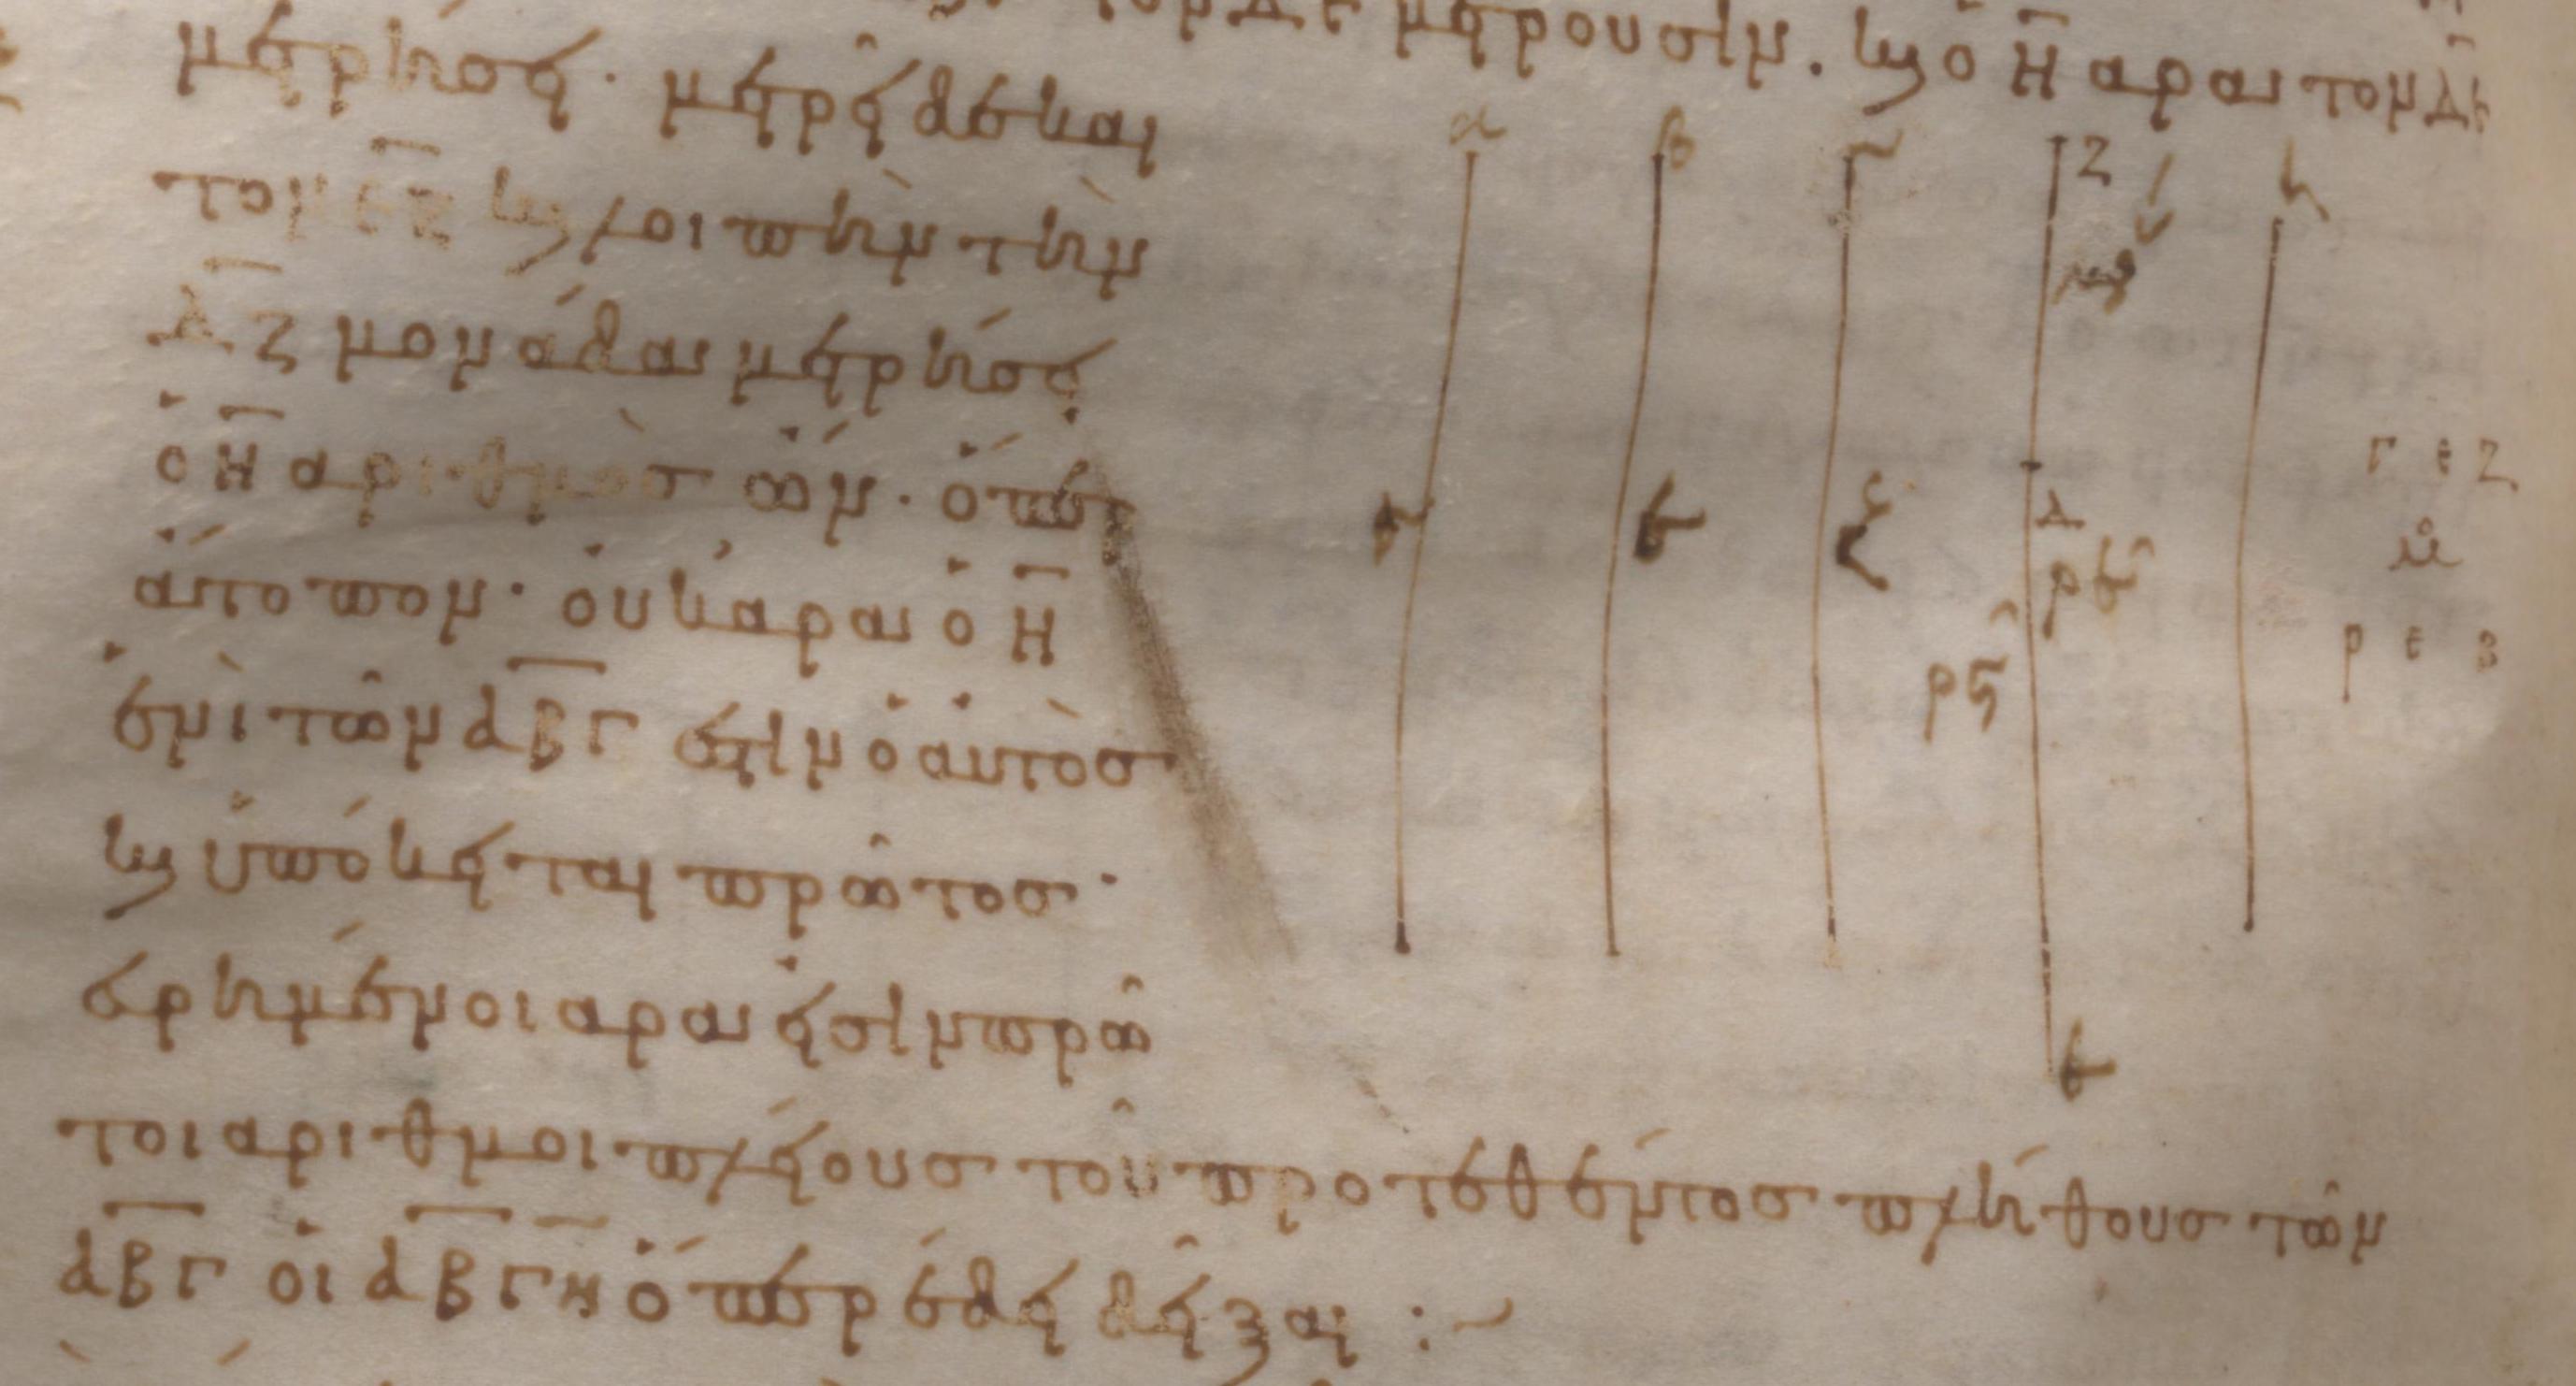 τὸν ΔΕ μετροῦσιν. καὶ ὁ Η̅ ἄρα τὸν ΔΕ
μετρήσει· μετρεῖ δὲ καὶ
τὸν ΕΖ καὶ λοιπὴν τὴν
ΔΖ μονάδα μετρήσει
ὁ Η̅ ἀριθμὸς ὤν· ὅπερ
ἄτοπον· οὐκ ἄρα ὁ Η̅
ἑνὶ τῶν ΑΒΓ ἐστιν ὁ αὐτὸς
καὶ ὑπόκειται πρῶτος·
εὑρημένοι ἄρα εἰσὶν πρῶ
τοι ἀριθμοὶ πλείους τοῦ προτεθέντος πλήθους τῶν
ΑΒΓ οἱ ΑΒΓΗ ὅπερ ἔδει δεῖξαι :~
α β γ Ζ η
Δ
ρε
ρϛ
ε
Γ Ε Ζ